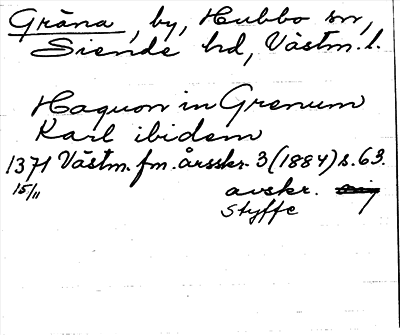 Gräna, by, Hubbo sn,
Siende hd, Västm. l.
Haquon in Grenum
Karl ibidem
1371 Västm. fm. årsskr. 3 (1884) s. 63.
15/11 avskr.
Styffe